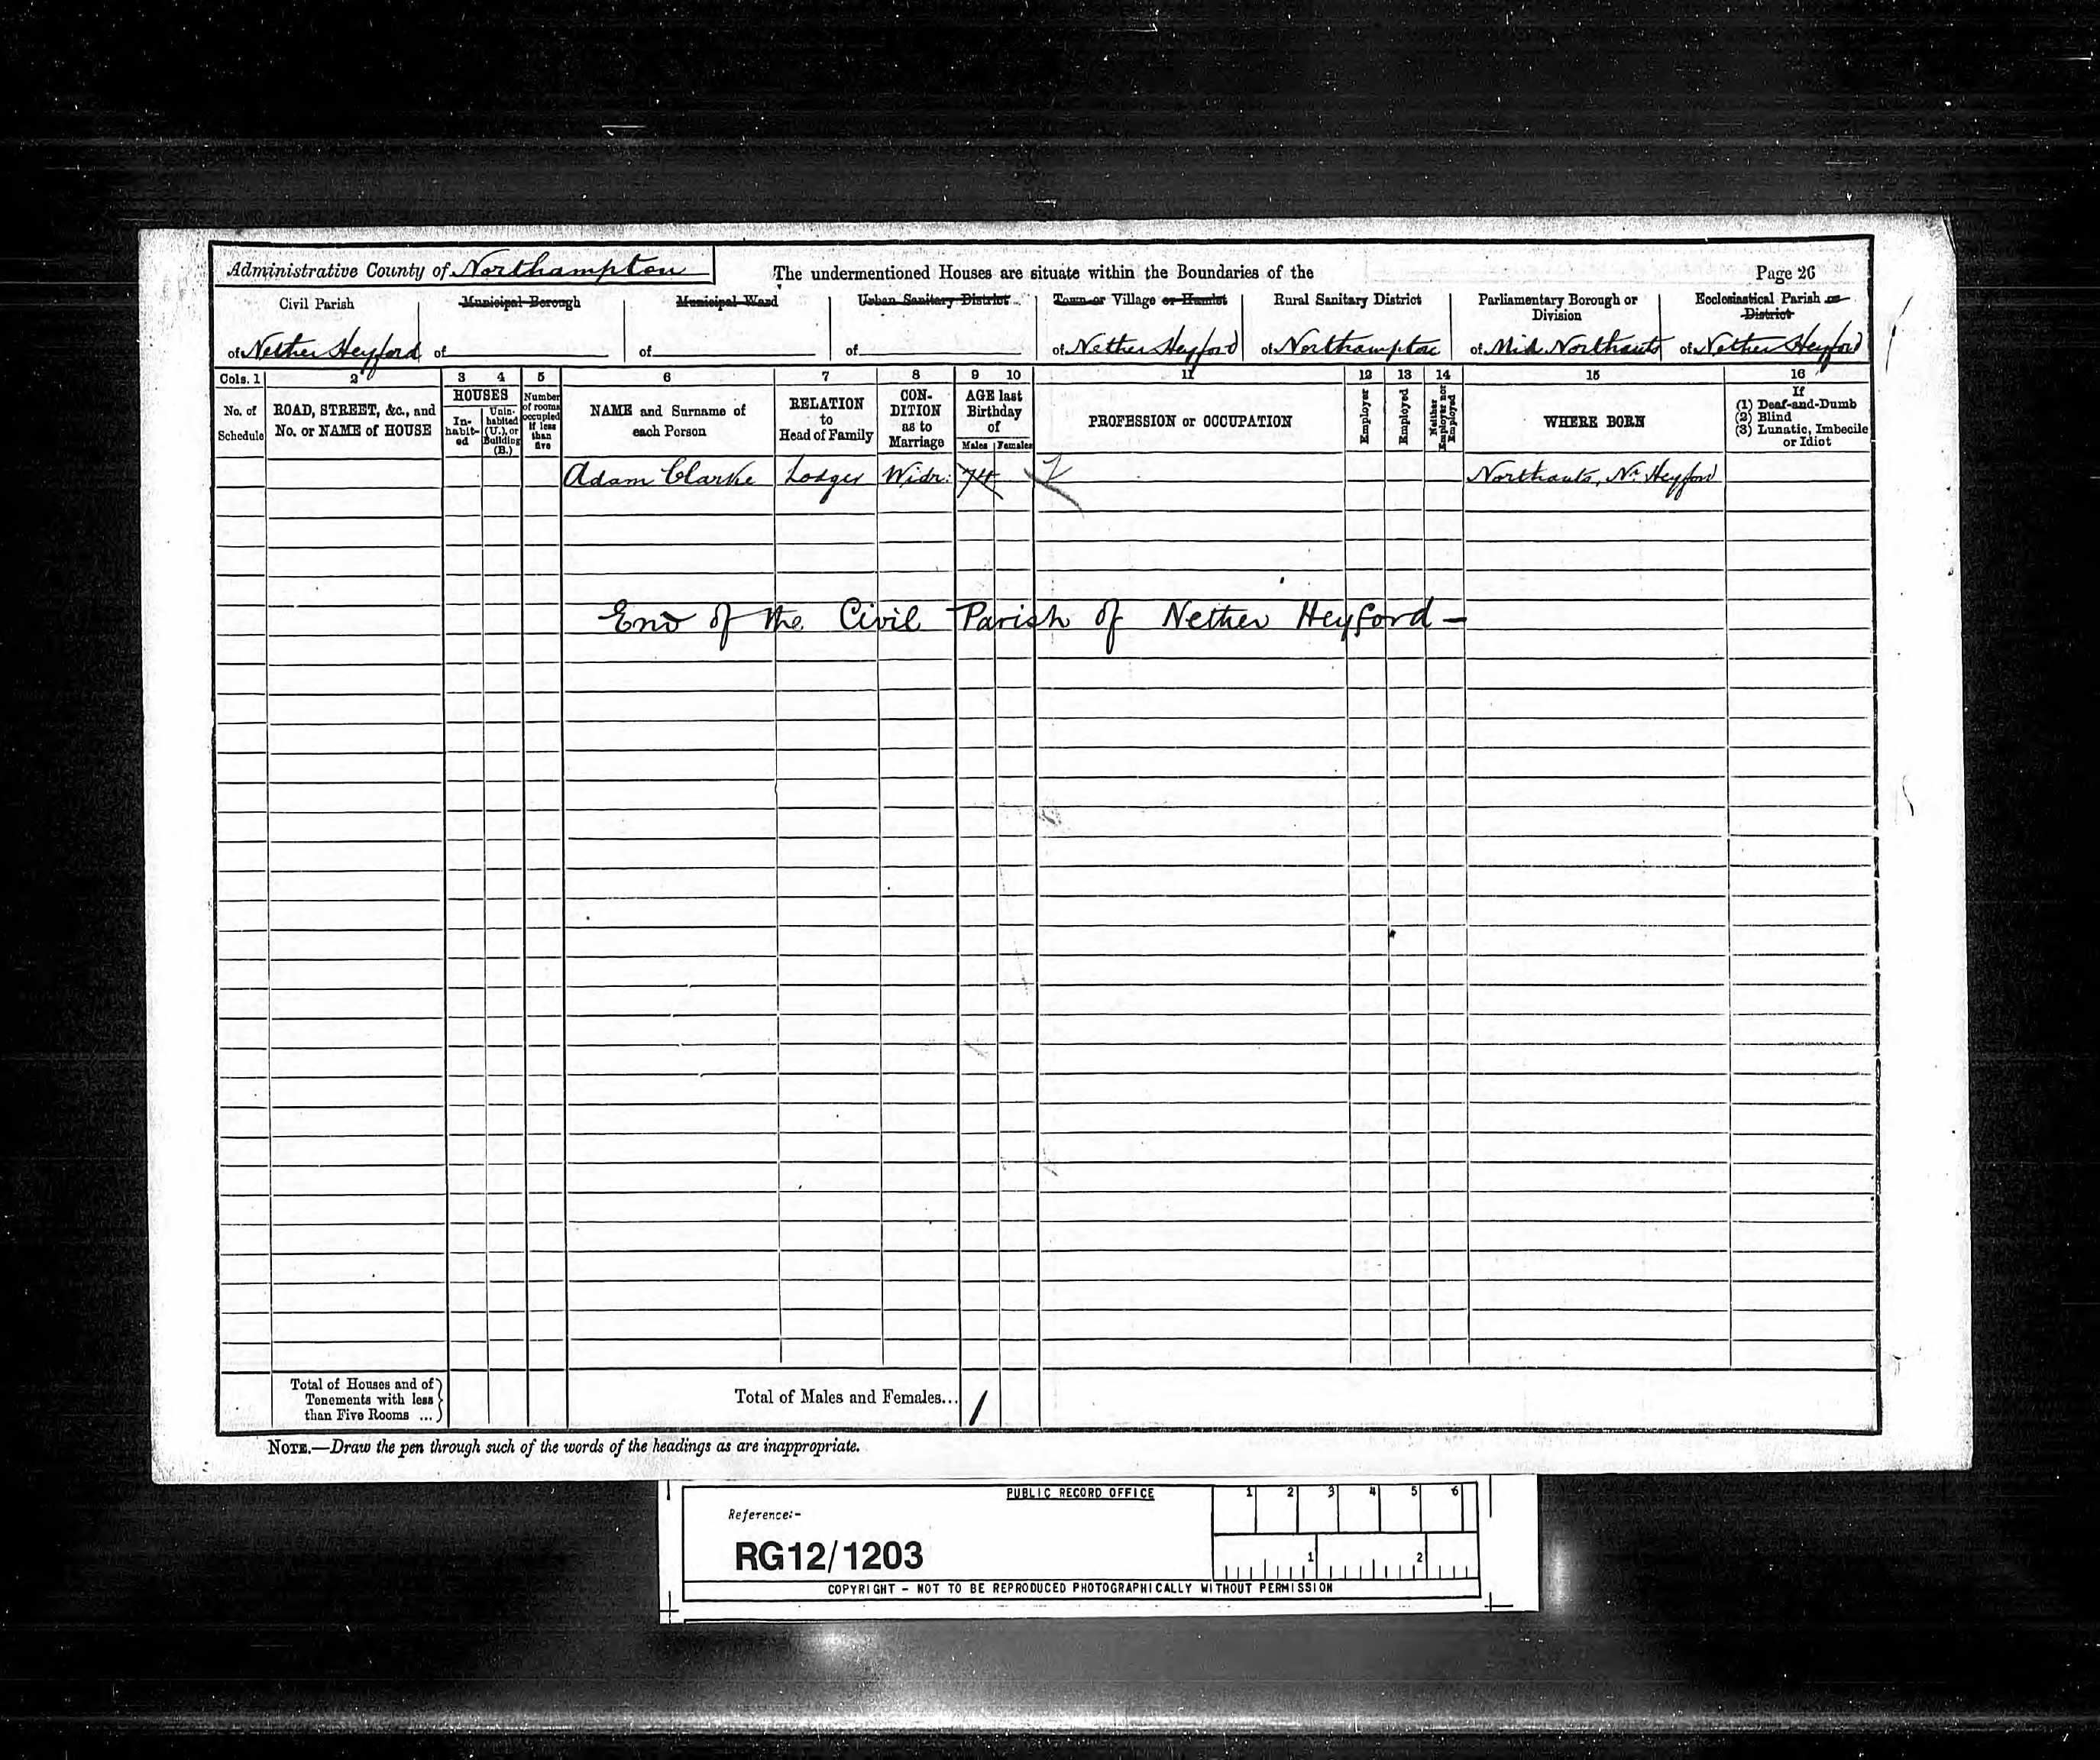 Administrative County of Northampton
The undermentioned Houses are situate within the Boundaries of the
Page 26
Civil Parish
of Nether Heyford
Municipal Borough
of
Municipal Ward
of
Urban Sanitary District
of
Town or Village or Hamlet
of Nether Heyford
Rural Sanitary District
of Northampton
Parliamentary Borough or
Division
of Mid Northants
Ecclesiastical Parish or
District
of Nether Heyford
Cols. 1 2 3 4 5 6 7 8 9 10 11 12 13 14 15 16
No. of
Schedule
ROAD, STREET, &c., and
No. or NAME of HOUSE
HOUSES
In-
habit-
ed
Unin-
habited
(U.), or
Building
(B.)
Number
of rooms
occupied
if less
than
five
NAME and Surname of
each Person
RELATION
to
Head of Family
CON-
DITION
as to
Marriage
AGE last
Birthday
of
Males Females
PROFESSION or OCCUPATION
Employer
Employed
Neither
Employer nor
Employed
WHERE BORN
If
(1) Deaf-and-Dumb
(2) Blind
(3) Lunatic, Imbecile
or Idiot
Adam Clarke Lodger Widr. 74 Northants, Nr. Heyford
End of the Civil Parish of Nether Heyford —
Total of Houses and of
Tenements with less
than Five Rooms ...
Total of Males and Females... 1
NOTE.—Draw the pen through such of the words of the headings as are inappropriate.
PUBLIC RECORD OFFICE
1 2 3 4 5 6
Reference:-
RG12/1203
1 2
COPYRIGHT - NOT TO BE REPRODUCED PHOTOGRAPHICALLY WITHOUT PERMISSION